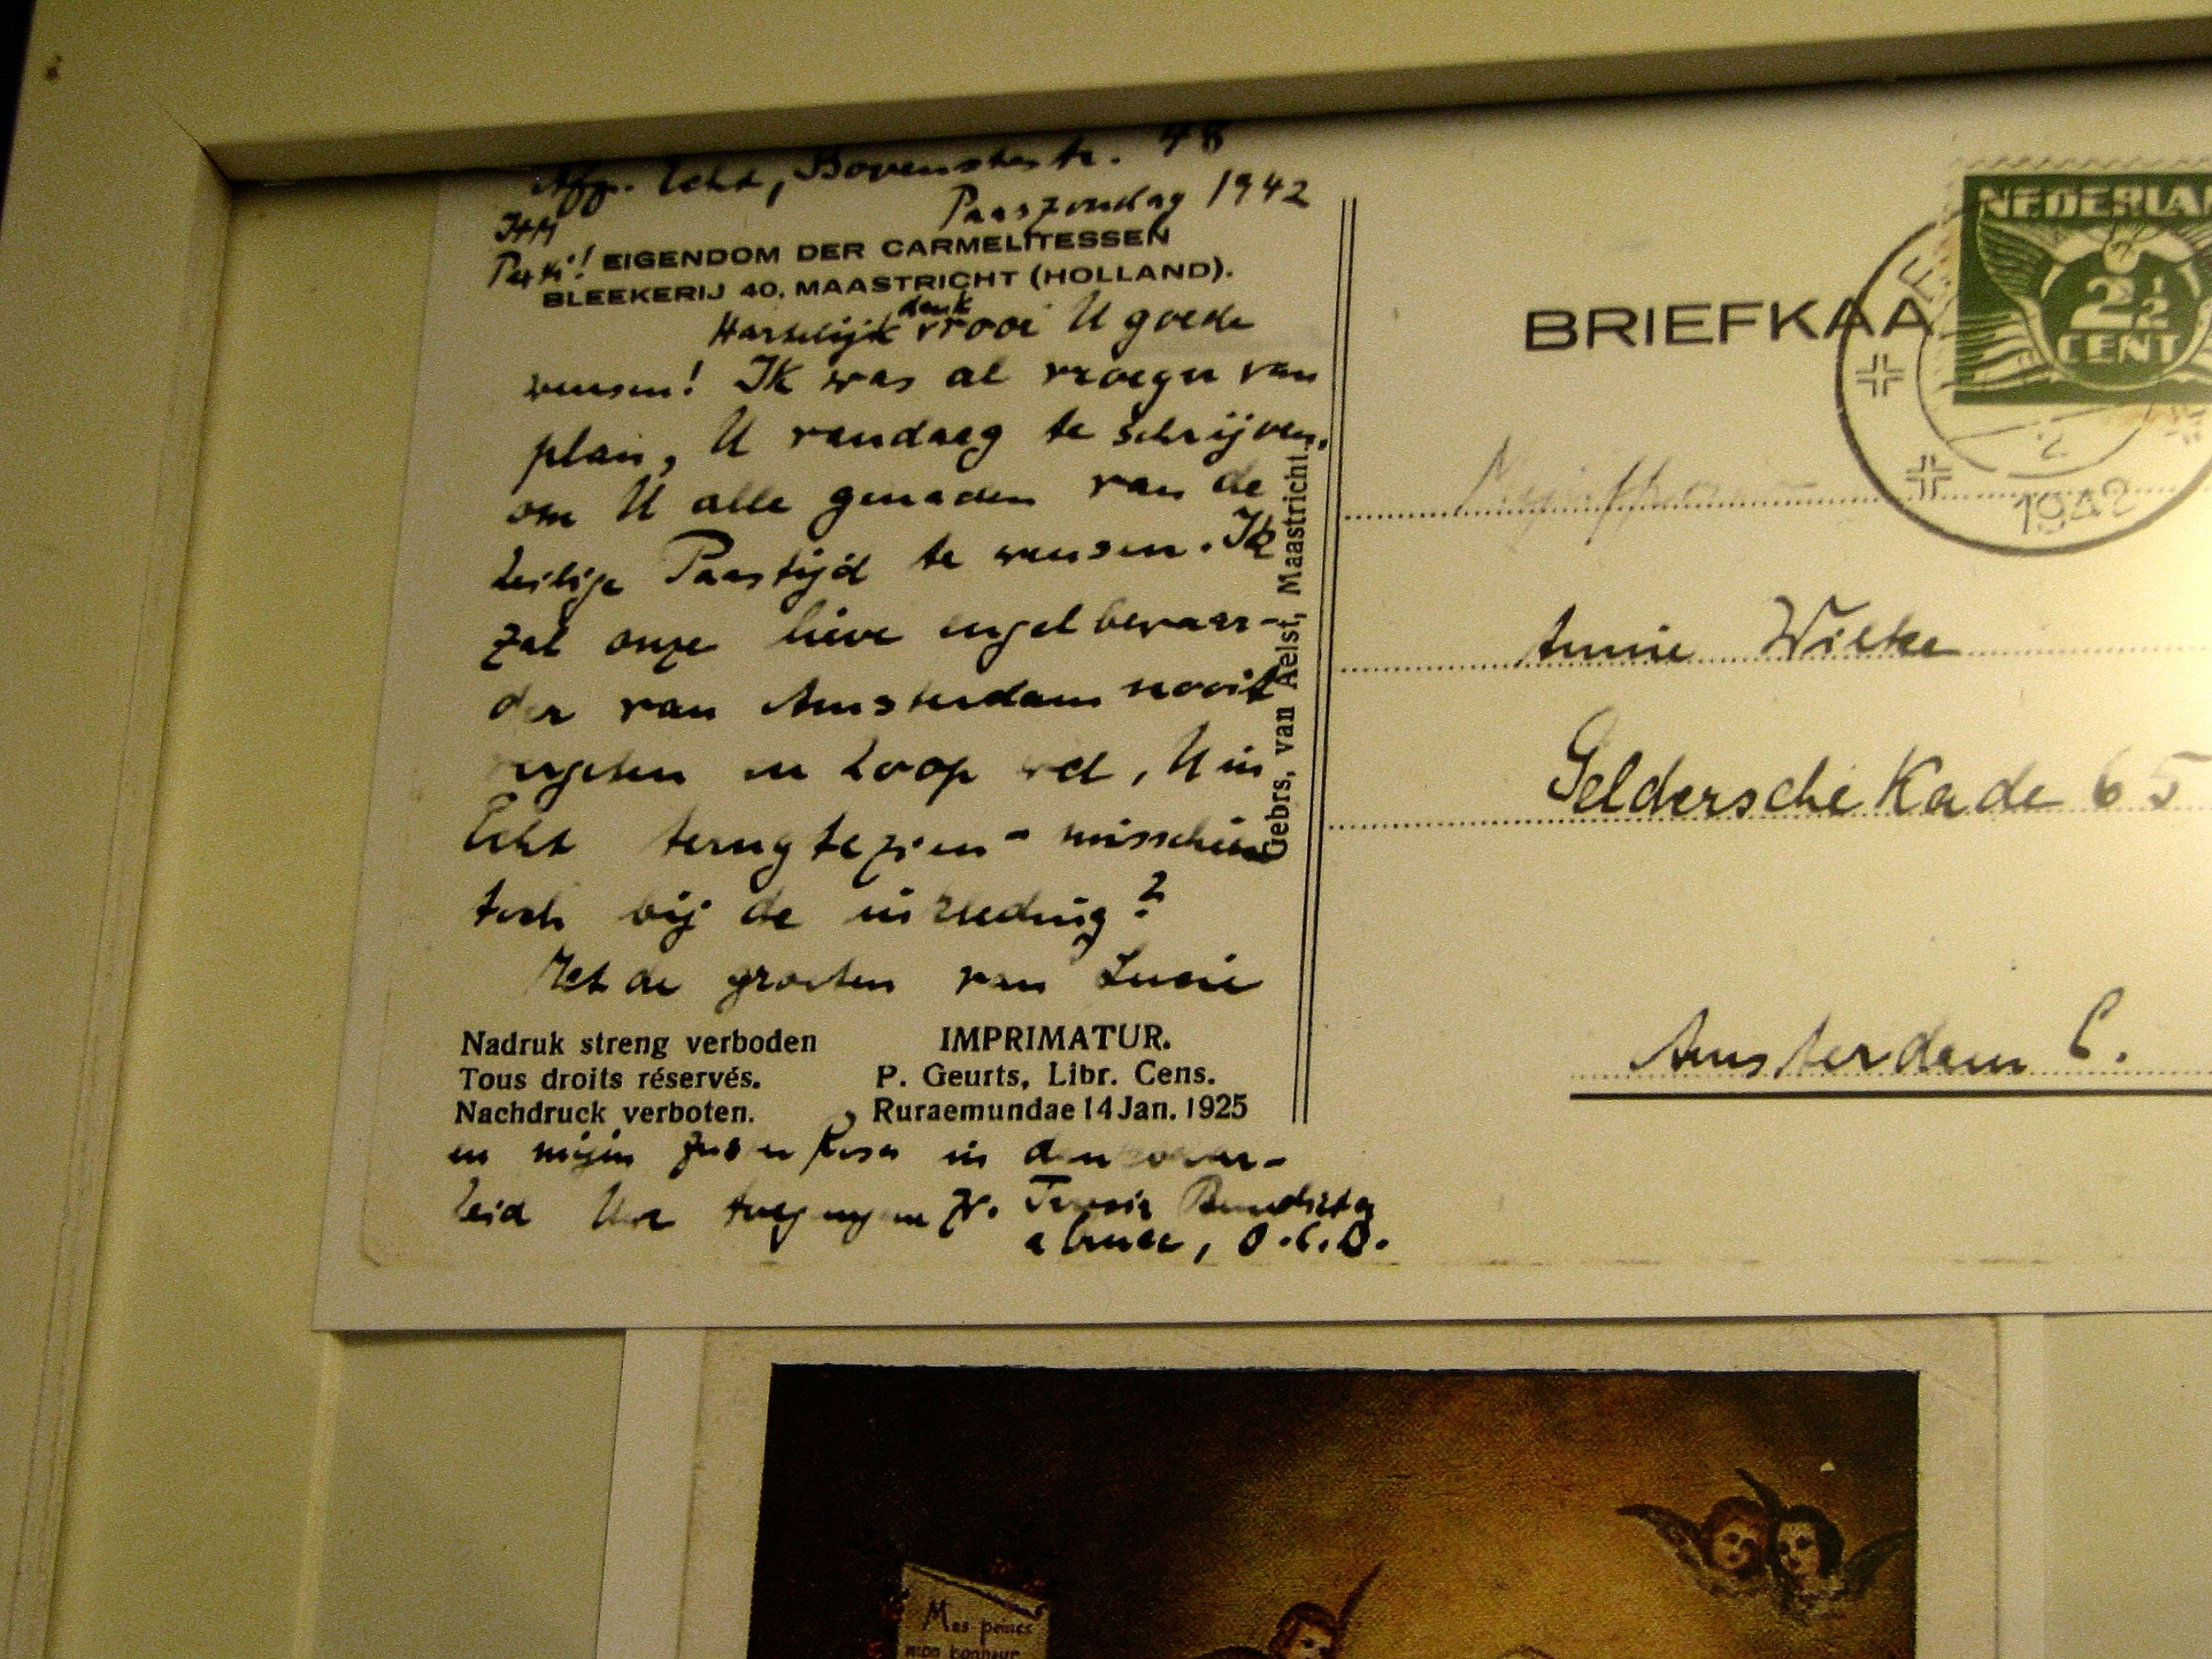 Afz. Echt, Bovenstestr. 48
Paaszondag 1942
Pax Xi! EIGENDOM DER CARMELITESSEN
BLEEKERIJ 40, MAASTRICHT (HOLLAND).
Hartelijk dank vroor U goede
wensen! Ik was al vroeger van
plan, U vandaag te schrijven,
om U alle genaden van de
heilige Paastijd te wensen. Ik
zal onze lieve engelbewaar-
der van Amsterdam nooit
vergeten en hoop wel, U in
Echt terug te zien - misschien
toch bij de inkleding?
Met de groeten van Lucie
Nadruk streng verboden
Tous droits réservés.
Nachdruck verboten.
IMPRIMATUR.
P. Geurts, Libr. Cens.
Ruraemundae 14 Jan. 1925
en mijn zuster Rosa in dankbaar-
heid Uwe toegenegen Zr. Teresia Benedicta
a Cruce, O.C.D.
Gebrs. van Aelst, Maastricht.
BRIEFKAA
NEDERLAN
2½
CENT
1942
Annie Wilke
Geldersche Kade 65
Amsterdam C.
Mes peines
mon bonheur